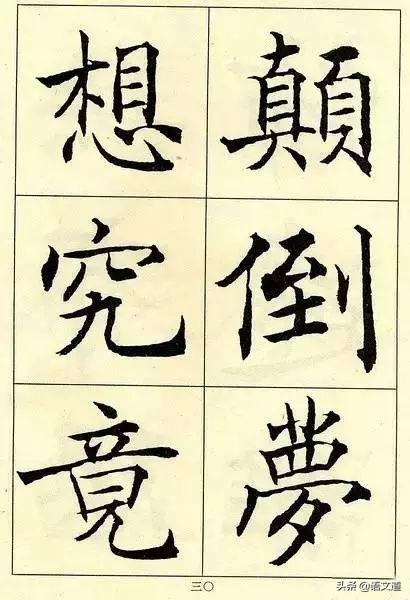 顛倒夢
想究竟
三〇
头条@语文道